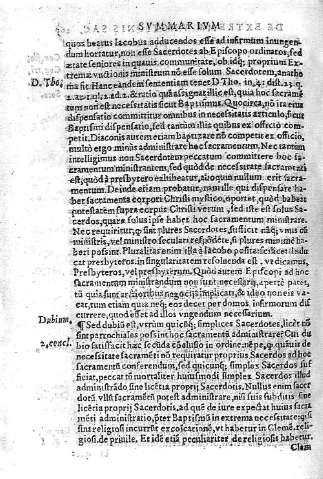 SVMMARIVM
quos beatus Iacobus adducendos esse ad infirmum inungen
dum hortatur, non esse Sacerdotes ab Episcopo ordinatos, sed
ætate seniores in quauis communitate, ob idq; proprium Ex
tremæ vnctionis ministrum nō esse solum Sacerdotem, anathe
ma sit. Hanc eandem sententiam tenet D. Tho.
D. Tho,
non est necessitatis sicut Baptismus. Quocirca, nō ita eius
dispensatio committitur omnibus in necessitatis articulo, sicut
Baptismi dispensatio, sed tantùm illis quibus ex officio com
petit. Diaconis autem etiam baptizare nō competit ex officio,
multò ergo minùs administrare hoc sacramentum. Nec tantùm
intelligimus non Sacerdotem peccatum committere hoc sa
cramentum ministrantem, sed quòd de necessitate sacramenti
est, quòd à presbytero exhibeatur, alioquin nullum erit sacra
mentum. Deinde etiam probatur, nam ille qui dispensare ha
bet sacramenta corpori Christi mystico, oportet, quòd habeat
potestatem supra corpus Christi verum, sed iste est solus Sa
cerdos, quare solus ipse habet hoc sacramentum ministrare.
Nec requiritur, q̄ sint plures Sacerdotes, sufficit
ministris, vel ministro seculari respōdēte, si plures minimè ha
beri possint. Pluralitas enim illa à Iacobo
cat presbyteros. in singularitatem resoluenda est, vt dicamus,
Presbyteros, vel presbyterum. Quòd autem Episcopi ad hoc
sacramentum ministrandum non sunt necessarij, apertè patet,
tū quia sunt arduioribus negocijs implicati, & ideo non eis va
cat, tum etiam quia neq; eos decet per domos infirmorum dis
currere, quod esset ad illos vngendum necessarium.
Dubium,
¶ Sed dubiū est, vtrùm quicūq; simplices Sacerdotes, licèt nō
sint parrochiales possint hoc sacramentū administrare? Cui du
2, concl.
bio satisfacit hæc secūda cōclusio
necessitate sacramēti nō requiratur proprius Sacerdos ad hoc
sacramentū conferendum, sed quicunq; simplex Sacerdos suf
ficiat, peccat tn̄ mortaliter huiusmodi simplex Sacerdos illud
administrādo sine licētia proprij Sacerdotis. Nullus enim sacer
dotū vllū sacramētū potest administrare, nisi suis subditis sine
licētia proprij Sacerdotis, ad quē de iure expedat huius sacra
mēti administratio, pter Baptismū in extrema necessitate q̄ si
nō religiosi incurrūt excōicationē, vt habetur in Clemē. reli
giosi. de priuile. Et idē etiā peculiariter de religiosis habetur.
Clam